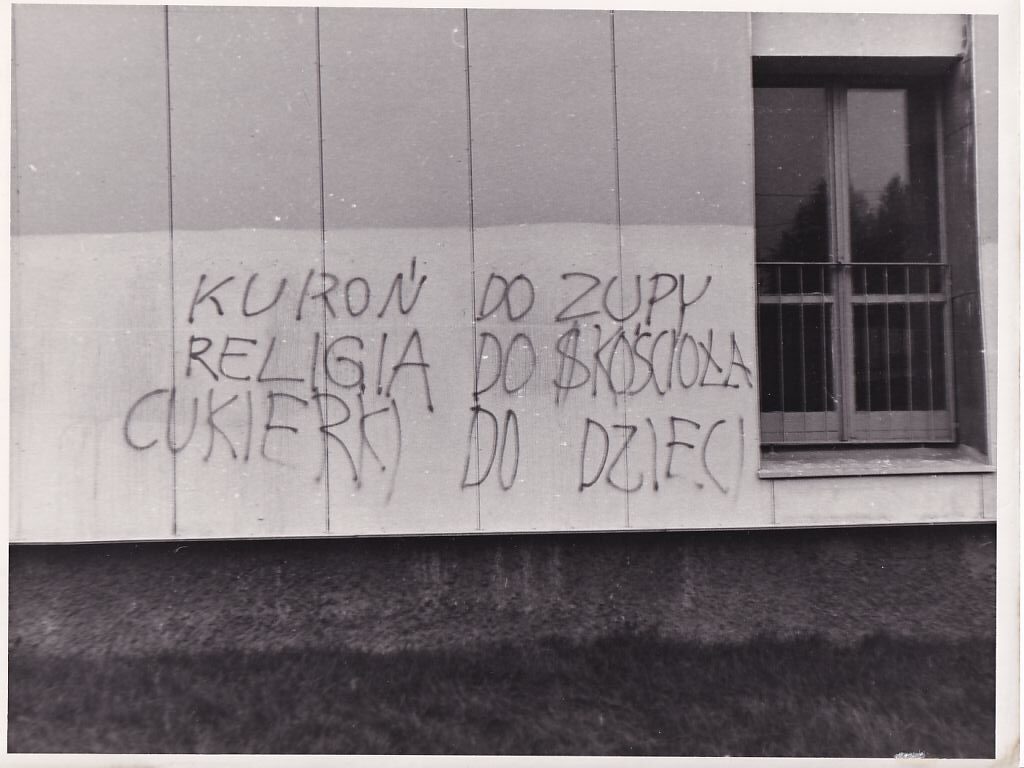 KUROŃ DO ZUPY
RELIGIA DO $KOŚCIOŁA
CUKIERKI DO DZIECI